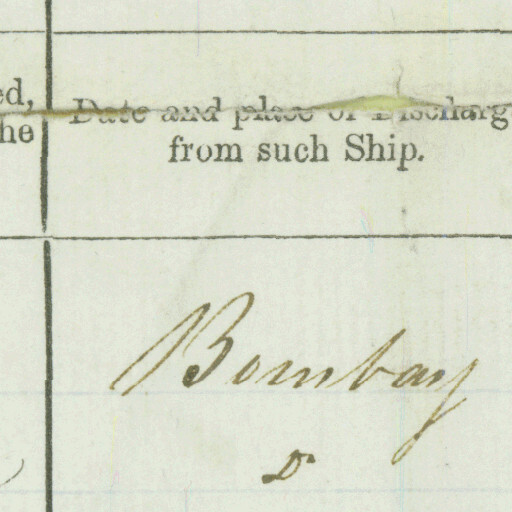 ed,
he
Date and place of Discharg
from such Ship.
Bombay
Do